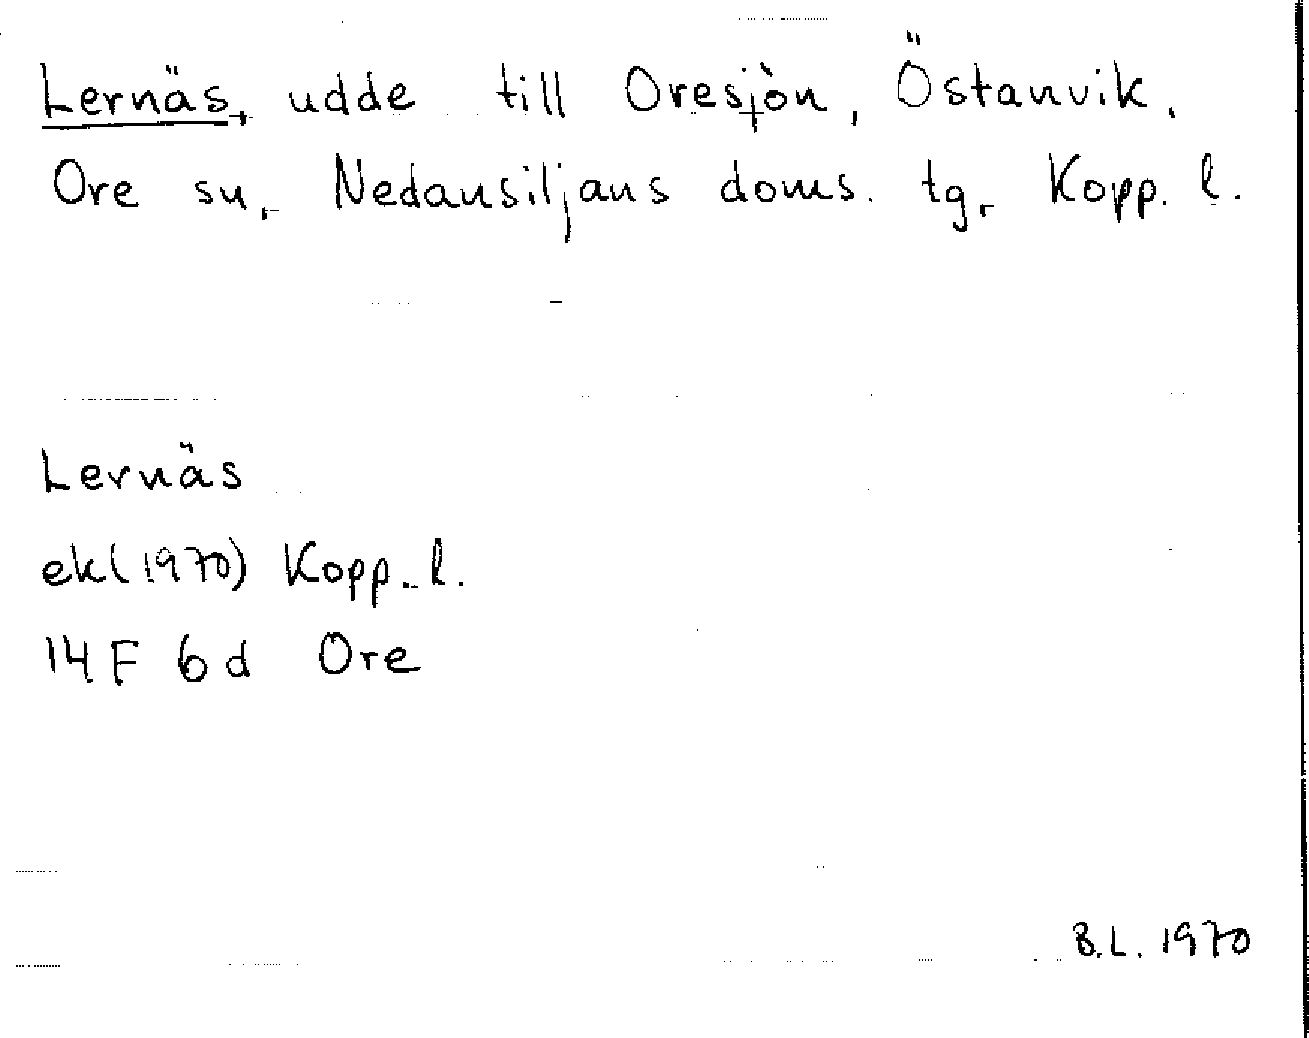 Lernäs, udde till Oresjön, Östanvik,
Ore sn, Nedansiljans doms. tg, Kopp. l.
Lernäs
ek(1970) Kopp. l.
14 F 6 d Ore
B.L. 1970